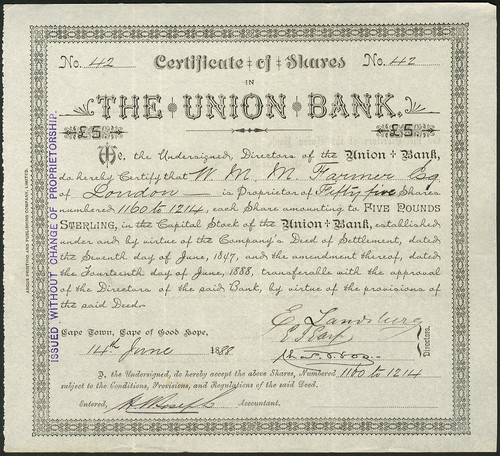 No. 42 Certificate of Shares No. 42
IN
THE UNION BANK.
£5 £5
We, the Undersigned, Directors of the Union Bank,
do hereby Certify that W. M. M. Farmer Esq.
of London is Proprietor of Fifty five Shares
numbered 1160 to 1214, each Share amounting to FIVE POUNDS
STERLING, in the Capital Stock of the Union Bank, established
under and by virtue of the Company's Deed of Settlement, dated
the Seventh day of June, 1847, and the amendment thereof, dated
the Fourteenth day of June, 1888, transferable with the approval
of the Directors of the said Bank, by virtue of the provisions of
the said Deed.
Cape Town, Cape of Good Hope,
14th June 1888
E. Landsberg
Directors.
I, the Undersigned, do hereby accept the above Shares, Numbered 1160 to 1214
subject to the Conditions, Provisions, and Regulations of the said Deed.
Entered, Accountant.
ISSUED WITHOUT CHANGE OF PROPRIETORSHIP.
ARGUS PRINTING AND PUBLISHING COMPANY, LIMITED.